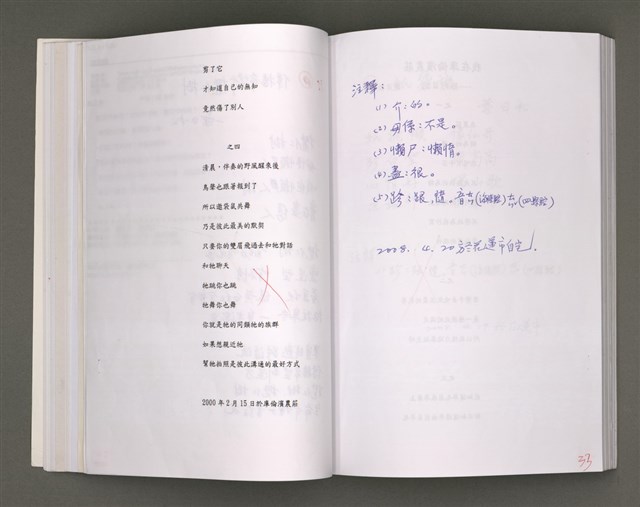 剪了它
才知道自己的無知
竟然傷了別人
之四
清晨,伴奏的野風醒來後
鳥聲也跟著報到了
所以邀袋鼠共舞
乃是彼此最美的默契
只要你的雙眉飛過去和牠對話
和牠聊天
牠跳你也跳
牠舞你也舞
你就是牠的同類牠的族群
如果想親近牠
幫牠拍照是彼此溝通的最好方式
2000年2月15日於庫倫濱農莊
注釋:
(1)介:的。
(2)毋係:不是。
(3)懶尸:懶惰。
(4)盡:很。
(5)
2008. 4. 20於花蓮市自宅
33